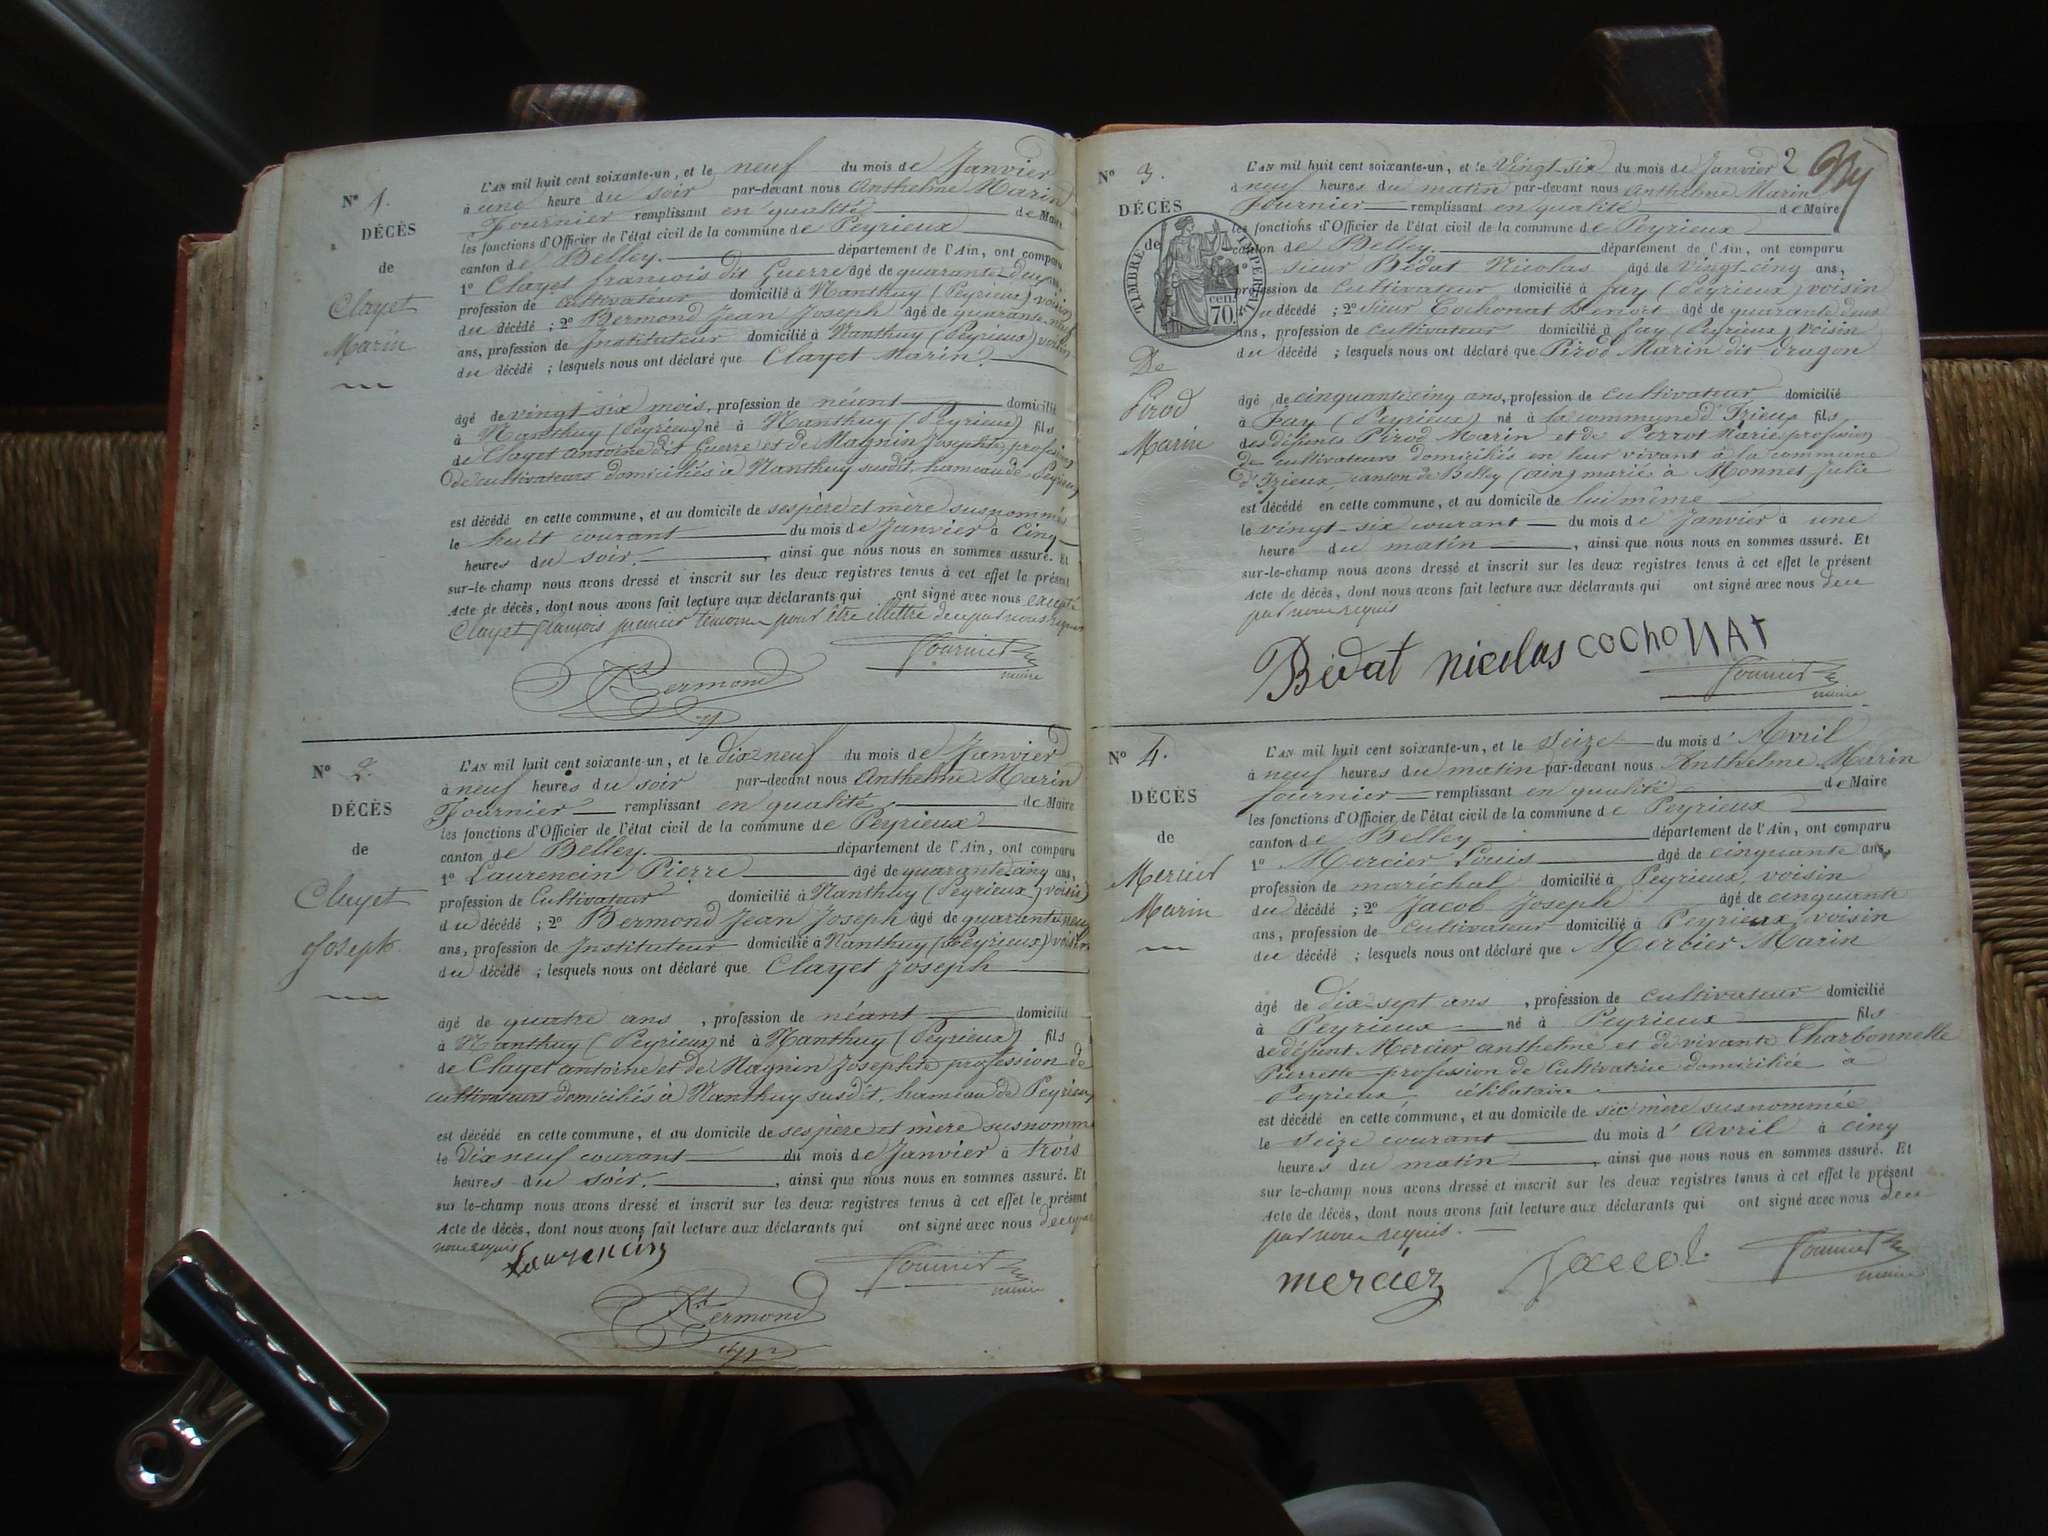 N° 1.
DÉCÈS
de
Clayet
Marin
L'AN mil huit cent soixante-un, et le neuf du mois de Janvier
à une heure du soir par-devant nous Anthelme Marin
Fournier remplissant en qualité de Maire
les fonctions d'Officier de l'état civil de la commune de Peyrieux
canton de Belley. département de l'Ain, ont comparu
1° Clayet françois dit Guerre âgé de quarante-deux ans,
profession de cultivateur domicilié à Nanthuy (Peyrieux) voisin
du décédé ; 2° Bermond Jean Joseph âgé de quarante-neuf
ans, profession de Instituteur domicilié à Nanthuy (Peyrieux) voisin
du décédé ; lesquels nous ont déclaré que Clayet Marin
âgé de vingt-six mois, profession de néant domicilié
à Nanthuy (Peyrieux) né à Nanthuy (Peyrieux) fils
de Clayet antoine dit Guerre et de Magnin Josephte, profession
de cultivateurs domiciliés à Nanthuy susdit, hameau de Peyrieux
est décédé en cette commune, et au domicile de ses père et mère susnommés
le huit courant du mois de Janvier à Cinq
heures du soir. , ainsi que nous nous en sommes assuré. Et
sur-le-champ nous avons dressé et inscrit sur les deux registres tenus à cet effet le présent
Acte de décès, dont nous avons fait lecture aux déclarants qui ont signé avec nous excepté
Clayet françois premier témoin pour être illettré de ce par nous requis
Bermond Fournier
maire
N° 2.
DÉCÈS
de
Clayet
Joseph
L'AN mil huit cent soixante-un, et le dix neuf du mois de Janvier
à neuf heures du soir par-devant nous Anthelme Marin
Fournier remplissant en qualité de Maire
les fonctions d'Officier de l'état civil de la commune de Peyrieux
canton de Belley. département de l'Ain, ont comparu
1° Laurencin Pierre âgé de quarante cinq ans,
profession de Cultivateur domicilié à Nanthuy (Peyrieux) voisin
du décédé ; 2° Bermond Jean Joseph âgé de quarante neuf
ans, profession de Instituteur domicilié à Nanthuy (Peyrieux) voisin
du décédé ; lesquels nous ont déclaré que Clayet Joseph
âgé de quatre ans , profession de néant domicilié
à Nanthuy (Peyrieux) né à Nanthuy (Peyrieux) fils
de Clayet antoine et de Magnin Josephte profession de
cultivateurs domiciliés à Nanthuy susdit, hameau de Peyrieux
est décédé en cette commune, et au domicile de ses père et mère susnommés
le dix neuf courant du mois de Janvier à trois
heures du soir. , ainsi que nous nous en sommes assuré. Et
sur le-champ nous avons dressé et inscrit sur les deux registres tenus à cet effet le présent
Acte de décès, dont nous avons fait lecture aux déclarants qui ont signé avec nous de ce par
nous requis
Laurencin Fournier
maire
Bermond
2
N° 3.
DÉCÈS
de
TIMBRE IMPERIAL
70 cen.
De
Pirod
Marin
L'AN mil huit cent soixante-un, et le Vingt-six du mois de Janvier
à neuf heures du matin par-devant nous Anthelme Marin
Fournier remplissant en qualité de Maire
les fonctions d'Officier de l'état civil de la commune de Peyrieux
canton de Belley. département de l'Ain, ont comparu
1° sieur Bédat Nicolas âgé de vingt-cinq ans,
profession de Cultivateur domicilié à Fay (Peyrieux) voisin
du décédé ; 2° Sieur Cochonat Benoit âgé de quarante deux
ans, profession de cultivateur domicilié à Fay (Peyrieux) voisin
du décédé ; lesquels nous ont déclaré que Pirod Marin dit dragon
âgé de cinquante cinq ans, profession de cultivateur domicilié
à Fay (Peyrieux) né à la commune d'Izieux fils
des défunts Pirod Marin et de Perrot Marie profession
de cultivateurs domiciliés en leur vivant à la commune
d'Izieux canton de Belley (ain) marié à Monnet Julie
est décédé en cette commune, et au domicile de lui même
le vingt-six courant du mois de Janvier à une
heure du matin , ainsi que nous nous en sommes assuré. Et
sur-le-champ nous avons dressé et inscrit sur les deux registres tenus à cet effet le présent
Acte de décès, dont nous avons fait lecture aux déclarants qui ont signé avec nous de ce
par nous requis
Bédat nicolas COCHONAT
Fournier
maire
N° 4.
DÉCÈS
de
Mercier
Marin
L'AN mil huit cent soixante-un, et le Seize du mois d'Avril
à neuf heures du matin par-devant nous Anthelme Marin
Fournier remplissant en qualité de Maire
les fonctions d'Officier de l'état civil de la commune de Peyrieux
canton de Belley département de l'Ain, ont comparu
1° Mercier Louis âgé de cinquante ans,
profession de maréchal domicilié à Peyrieux, voisin
du décédé ; 2° Jacob Joseph âgé de cinquante
ans, profession de Cultivateur domicilié à Peyrieux, voisin
du décédé ; lesquels nous ont déclaré que Mercier Marin
âgé de dix-sept ans , profession de cultivateur domicilié
à Peyrieux né à Peyrieux fils
de défunt Mercier anthelme et de vivante Charbonnette
Pierrette profession de Cultivatrice domiciliée à
Peyrieux célibataire
est décédé en cette commune, et au domicile de sa mère susnommée
le Seize courant du mois d'Avril à cinq
heures du matin , ainsi que nous nous en sommes assuré. Et
sur le-champ nous avons dressé et inscrit sur les deux registres tenus à cet effet le présent
Acte de décès, dont nous avons fait lecture aux déclarants qui ont signé avec nous de ce
par nous requis.
mercier Jacob Fournier
maire